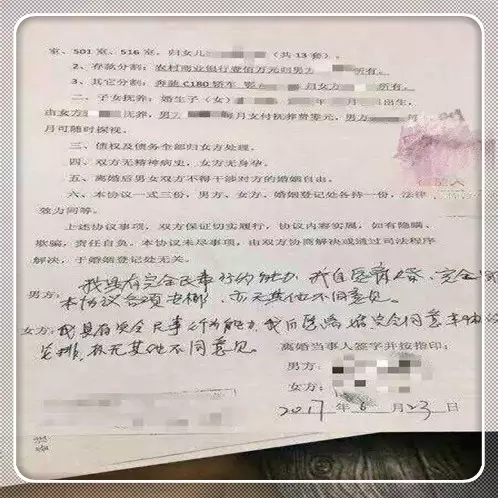 室、501室、516室，归女儿（共13套）。
2、存款分割：农村商业银行壹佰万元归男方所有。
3、其它分割：奔驰 C180 轿车 鄂归女方所有。
二、子女抚养：婚生子（女）年月出生，
由女方抚养，男方每月支付抚养费壹元，男方
月可随时探视。
三、债权及债务全部归女方处理。
四、双方无精神病史，女方无身孕。
五、离婚后男女双方不得干涉对方的婚姻自由。
六、本协议一式三份，男方、女方、婚姻登记处各持一份，法律
效力同等。
上述协议事项，双方保证切实履行，协议内容实属，如有隐瞒、
欺骗，责任自负。本协议未尽事项，由双方协商解决或通过司法程序
解决，于婚姻登记处无关。
我具有完全民事行为能力，我自愿离婚，完全
男方：本协议各项安排，亦无其他不同意见。
女方：我具有完全民事行为能力，我自愿离婚完全同意本协议
安排，亦无其他不同意见。
离婚当事人签字并按指印：
男方：
女方：
2017年6月23日